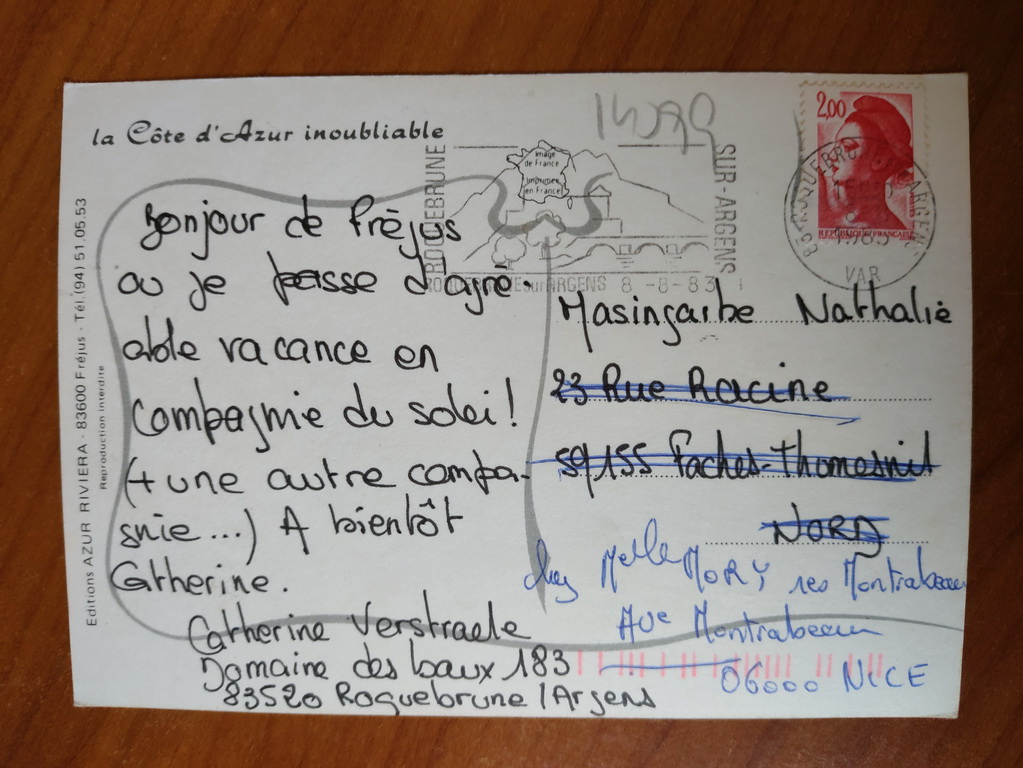 la Côte d'Azur inoubliable
Editions AZUR RIVIERA - 83600 Fréjus - Tél. (94) 51.05.53
Reproduction interdite
Image
de France
Imprimée
en France
ROQUEBRUNE
SUR-ARGENS
ROQUEBRUNE sur ARGENS 8 -8- 83
2,00
REPUBLIQUE FRANÇAISE
83 ROQUEBRUNE ARGENS
VAR
Bonjour de Fréjus
ou je passe d'agré-
able vacance en
compagnie du solei!
(+ une autre compa-
gnie...) A bientôt
Catherine.
Catherine Verstraele
Domaine des baux 183
83520 Roquebrune/Argens
Masingarbe Nathalie
23 Rue Racine
59155 Faches-Thomesnil
NORD
chez Melle MORY res Montrabeau
Ave Montrabeau
06000 NICE